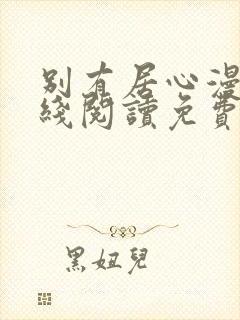 別有居心漫
綫閱讀免費
黑妞兒